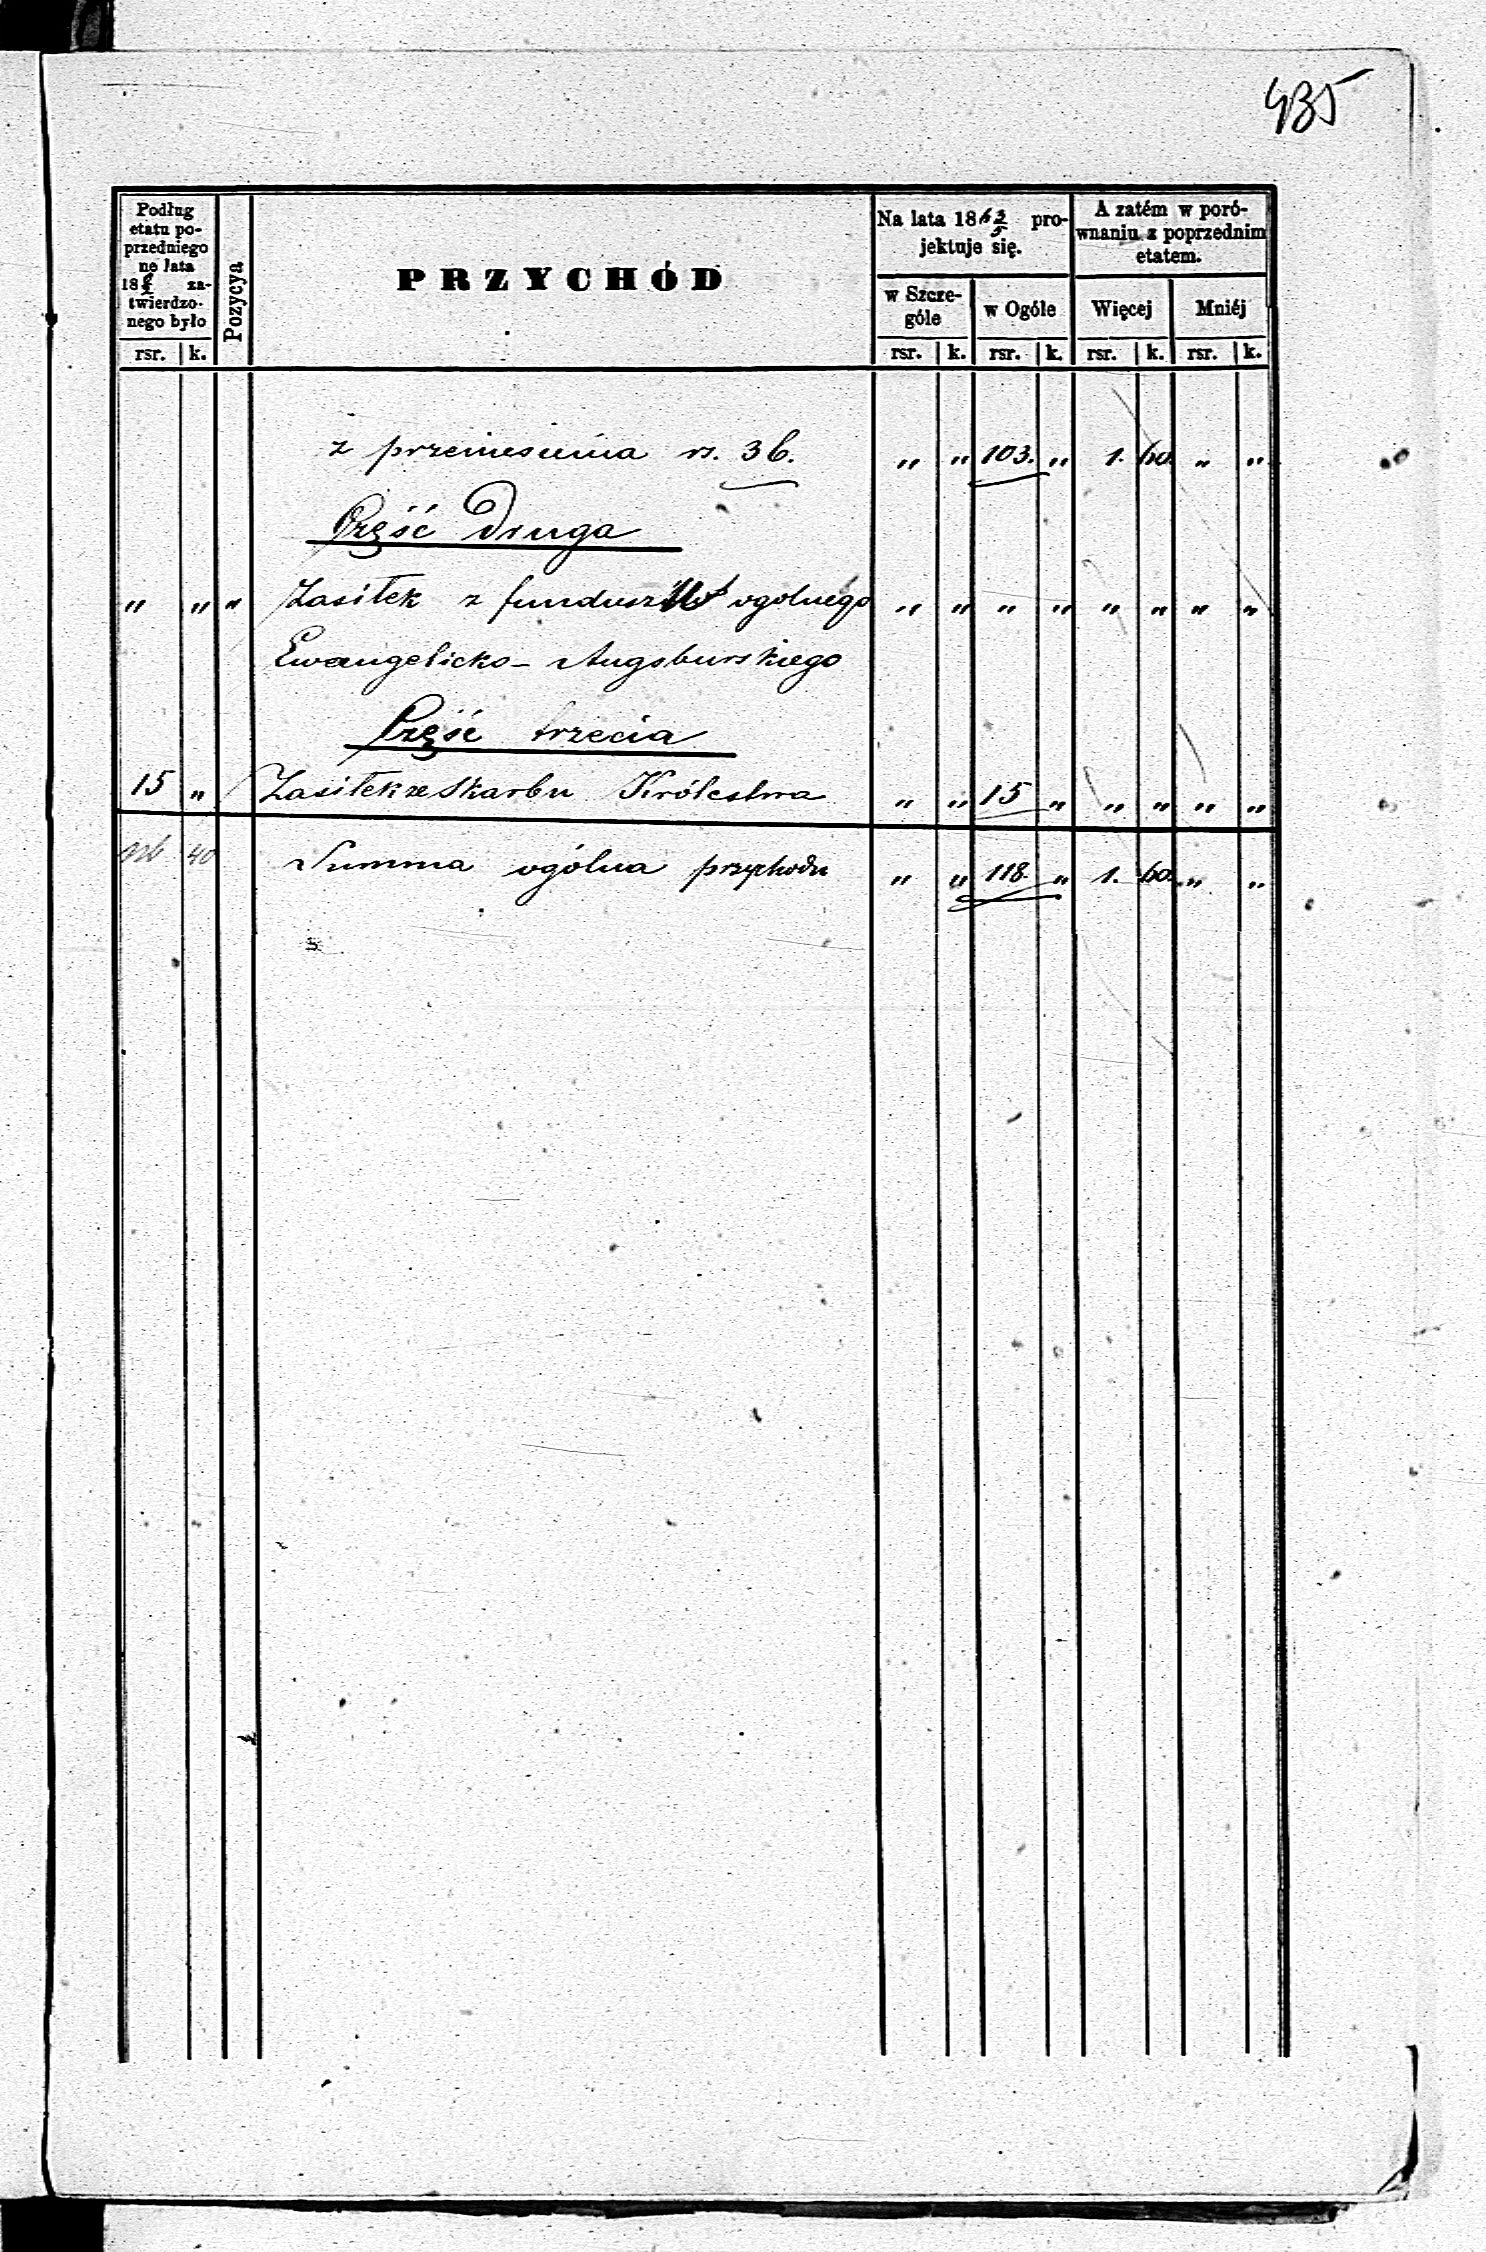 435
Podług
etatu po-
przedniego
na lata
18 za-
twierdzo-
nego było
rsr. k.
Pozycya
PRZYCHÓD
Na lata 1863/5 pro-
jektuje się.
w Szcze-
góle
rsr. k.
w Ogóle
rsr. k.
A zatém w poró-
wnaniu z poprzednim
etatem.
Więcej
rsr. k.
Mniéj
rsr. k.
z przeniesienia rs. 36. „ „ 103. „ 1. 60. „ „
Część Druga
„ „ „ Zasiłek z funduszu ogolnego „ „ „ „ „ „ „ „
Ewangelicko- Augsburskiego
Część trzecia
15 „ Zasiłek ze Skarbu Królestwa „ „ 15 „ „ „ „ „
116 40 Summa ogólna przychodu „ „ 118. „ 1. 60. „ „